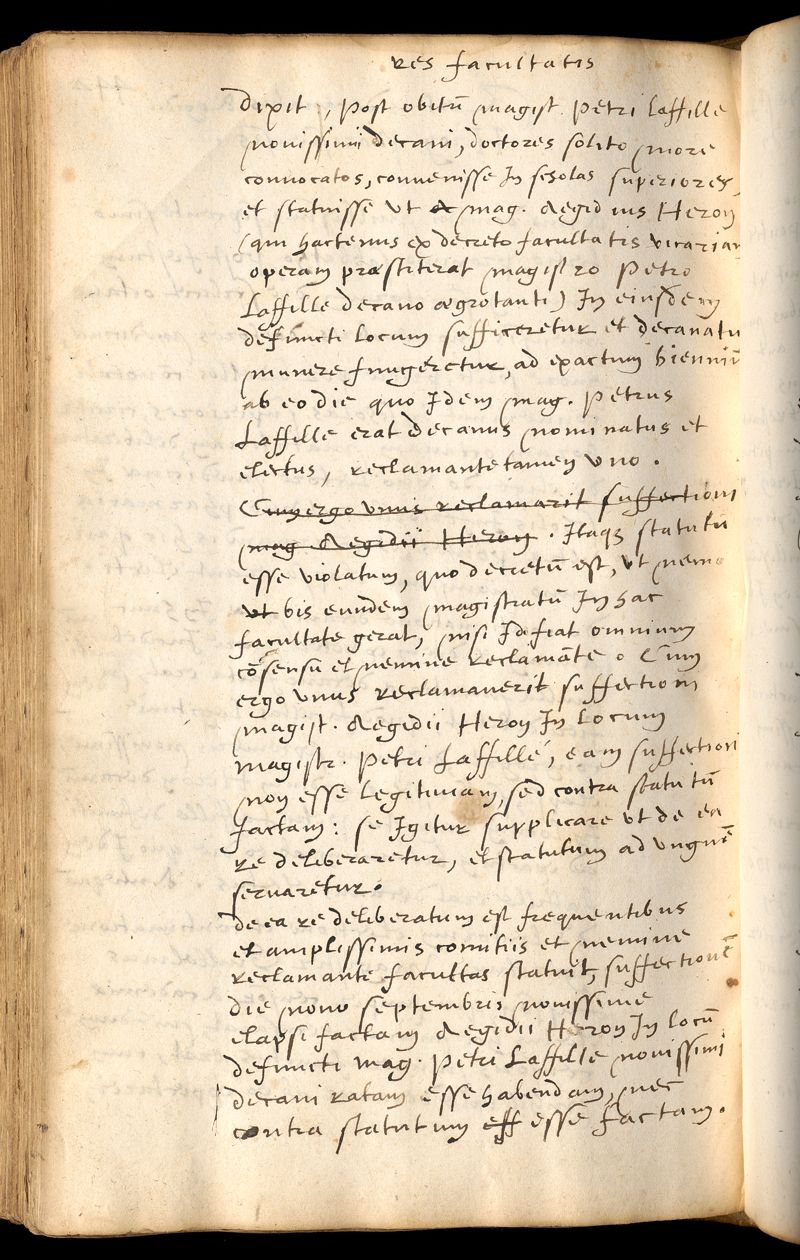 res facultatis
dixit, post obitū magist. Petri Laffille
nouissimi decani, doctores solito more
conuocatos, conuenisse In scholas superiores,
et statuisse ut & mag. Aegidius Heron
(qui hactenus ex decreto facultatis vicariam
operam præstiterat magistro Petro
Laffille decano ægrotanti) In eiusdem
defuncti locum sufficeretur et decanatu
munere fungeretur, ad exactum bienniū
ab eo die quo Idem mag. Petrus
Laffille erat Decanus nominatus et
electus, reclamante tamen vno.
Cum ergo vnus reclamarit suffectioni
mag Aegidii Heron. Itaq; statutū
esse violatum, quo decretū est, ut nemo
ut bis eundem magistratū In hac
facultate gerat, nisi Id fiat omnium
cōsensu et nemine reclamāte. Cum
ergo vnus reclamauerit suffectioni
magist. Aegidii Heron In locum
magistr. Petri Laffille, eam suffectioni
non esse legitimam, sed contra statutū
factam: se Igitur supplicare ut de ea
re deliberaretur, et statutum ad unguē
seruaretur.
de ea re deliberatum est frequentibus
et amplissimis comitiis et nemine
reclamante facultas statuit, suffectionē
die nono septembris nouissime
elapsi factam Aegidii Heron In locū
defuncti mag. Petri Laffille nouissimi
decani ratam esse habendam, nec
contra statutum eff esse factam.